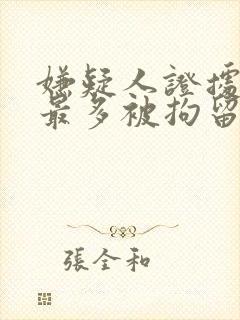 嫌疑人證據
最多被拘留
張全和